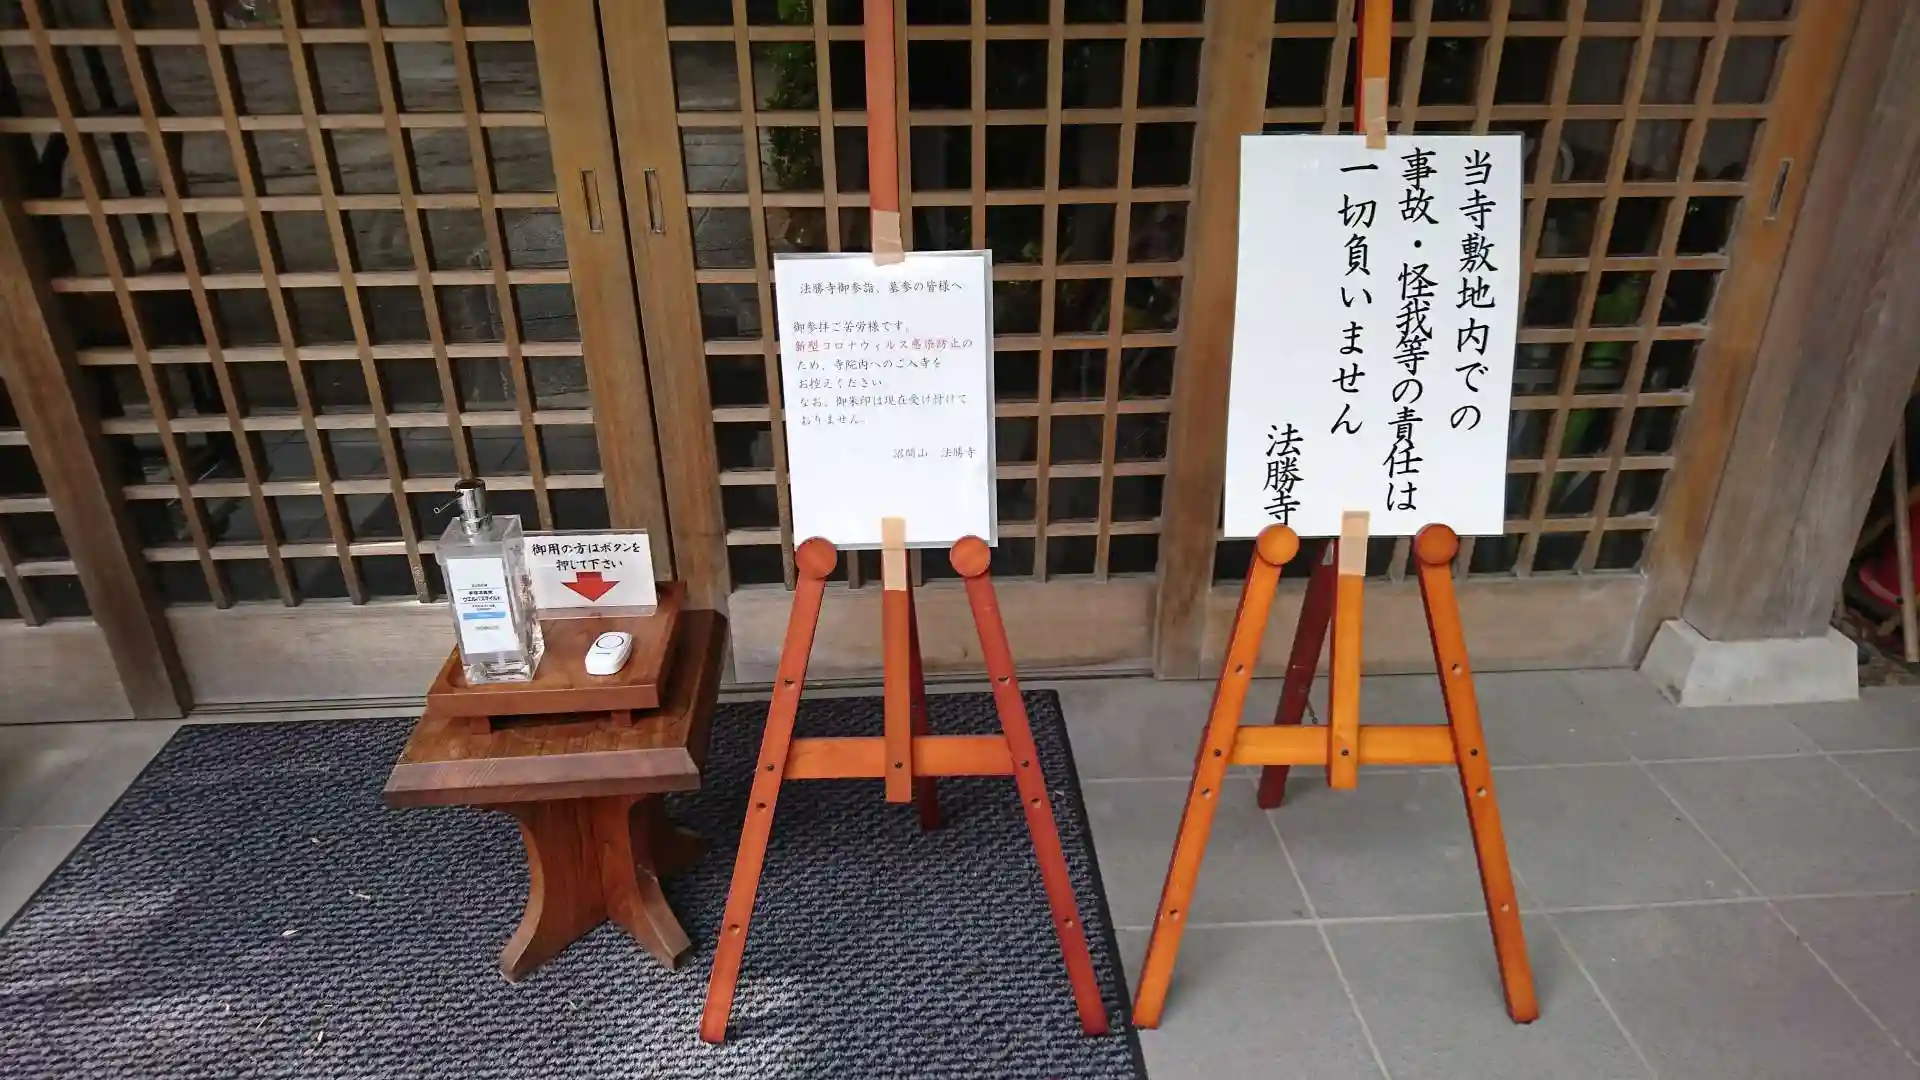 法勝寺御参詣、墓参の皆様へ
御参拝ご苦労様です。
新型コロナウィルス感染防止の
ため、寺院内へのご入寺を
お控えください
なお、御朱印は現在受け付けて
おりません。
沼間山 法勝寺
当寺敷地内での
事故・怪我等の責任は
一切負いません
法勝寺
御用の方はボタンを
押して下さい
手指消毒液
ウエルパスマイルド